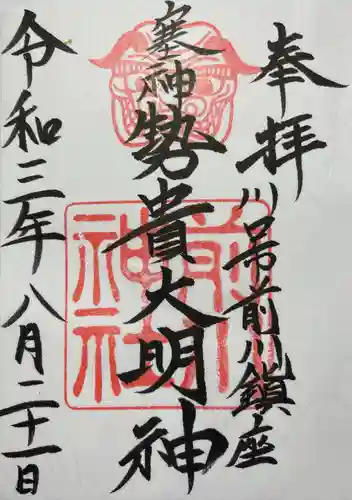 奉拝
川口市前川鎮座
塞神
勢貴大明神
令和三年八月二十一日